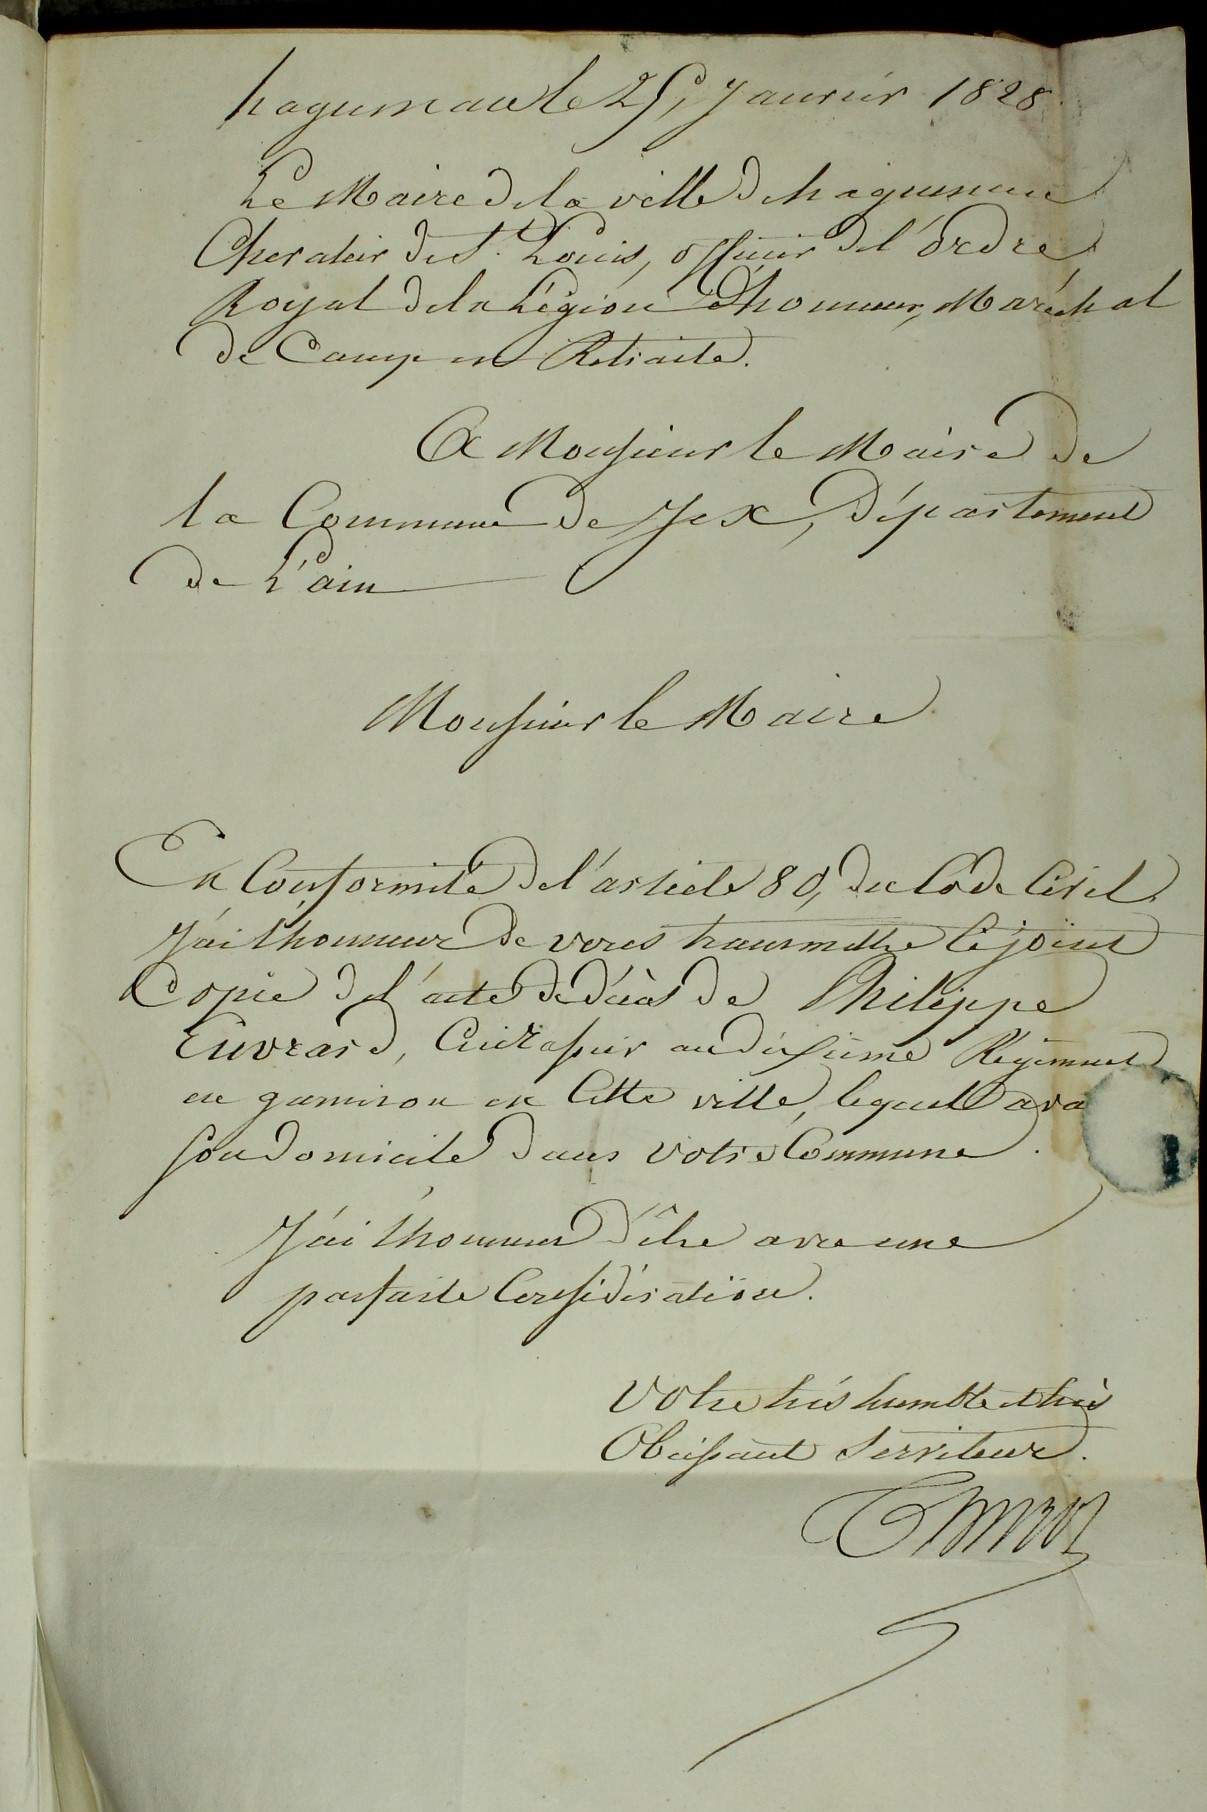 haguenau le 25, Janvier 1828
Le Maire de la ville de haguenau
Chevalier de St. Louis, officier de l'ordre
Royal de la Légion d'honneur, Maréchal
de Camp en Retraite.
A Monsieur le Maire de
la Commune de Jex, Département
de L'ain
Monsieur le Maire
En Conformité de l'article 80, du Code Civil
J'ai l'honneur de vous transmettre Cijoint
Copie de l'acte de décès de Philippe
Euvrard, Cuirassier au dixième Régiment
en garnison en Cette ville, lequel ava
son domicile dans votre Commune.
J'ai l'honneur d'être avec une
parfaite Considération.
Votre très humble et très
Obeissant Serviteur.